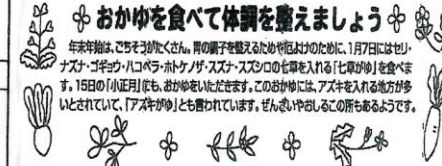 おかゆを食べて体調を整えましょう
年末年始は、ごちそうがたくさん。胃の調子を整えるためや厄よけのために、1月7日にはセリ・
ナズナ・ゴギョウ・ハコベラ・ホトケノザ・スズナ・スズシロの七草を入れる「七草がゆ」を食べま
す。15日の「小正月」にも、おかゆをいただきます。このおかゆには、アズキを入れる地方が多
いとされていて、「アズキがゆ」とも言われています。ぜんざいやおしるこの所もあるようです。